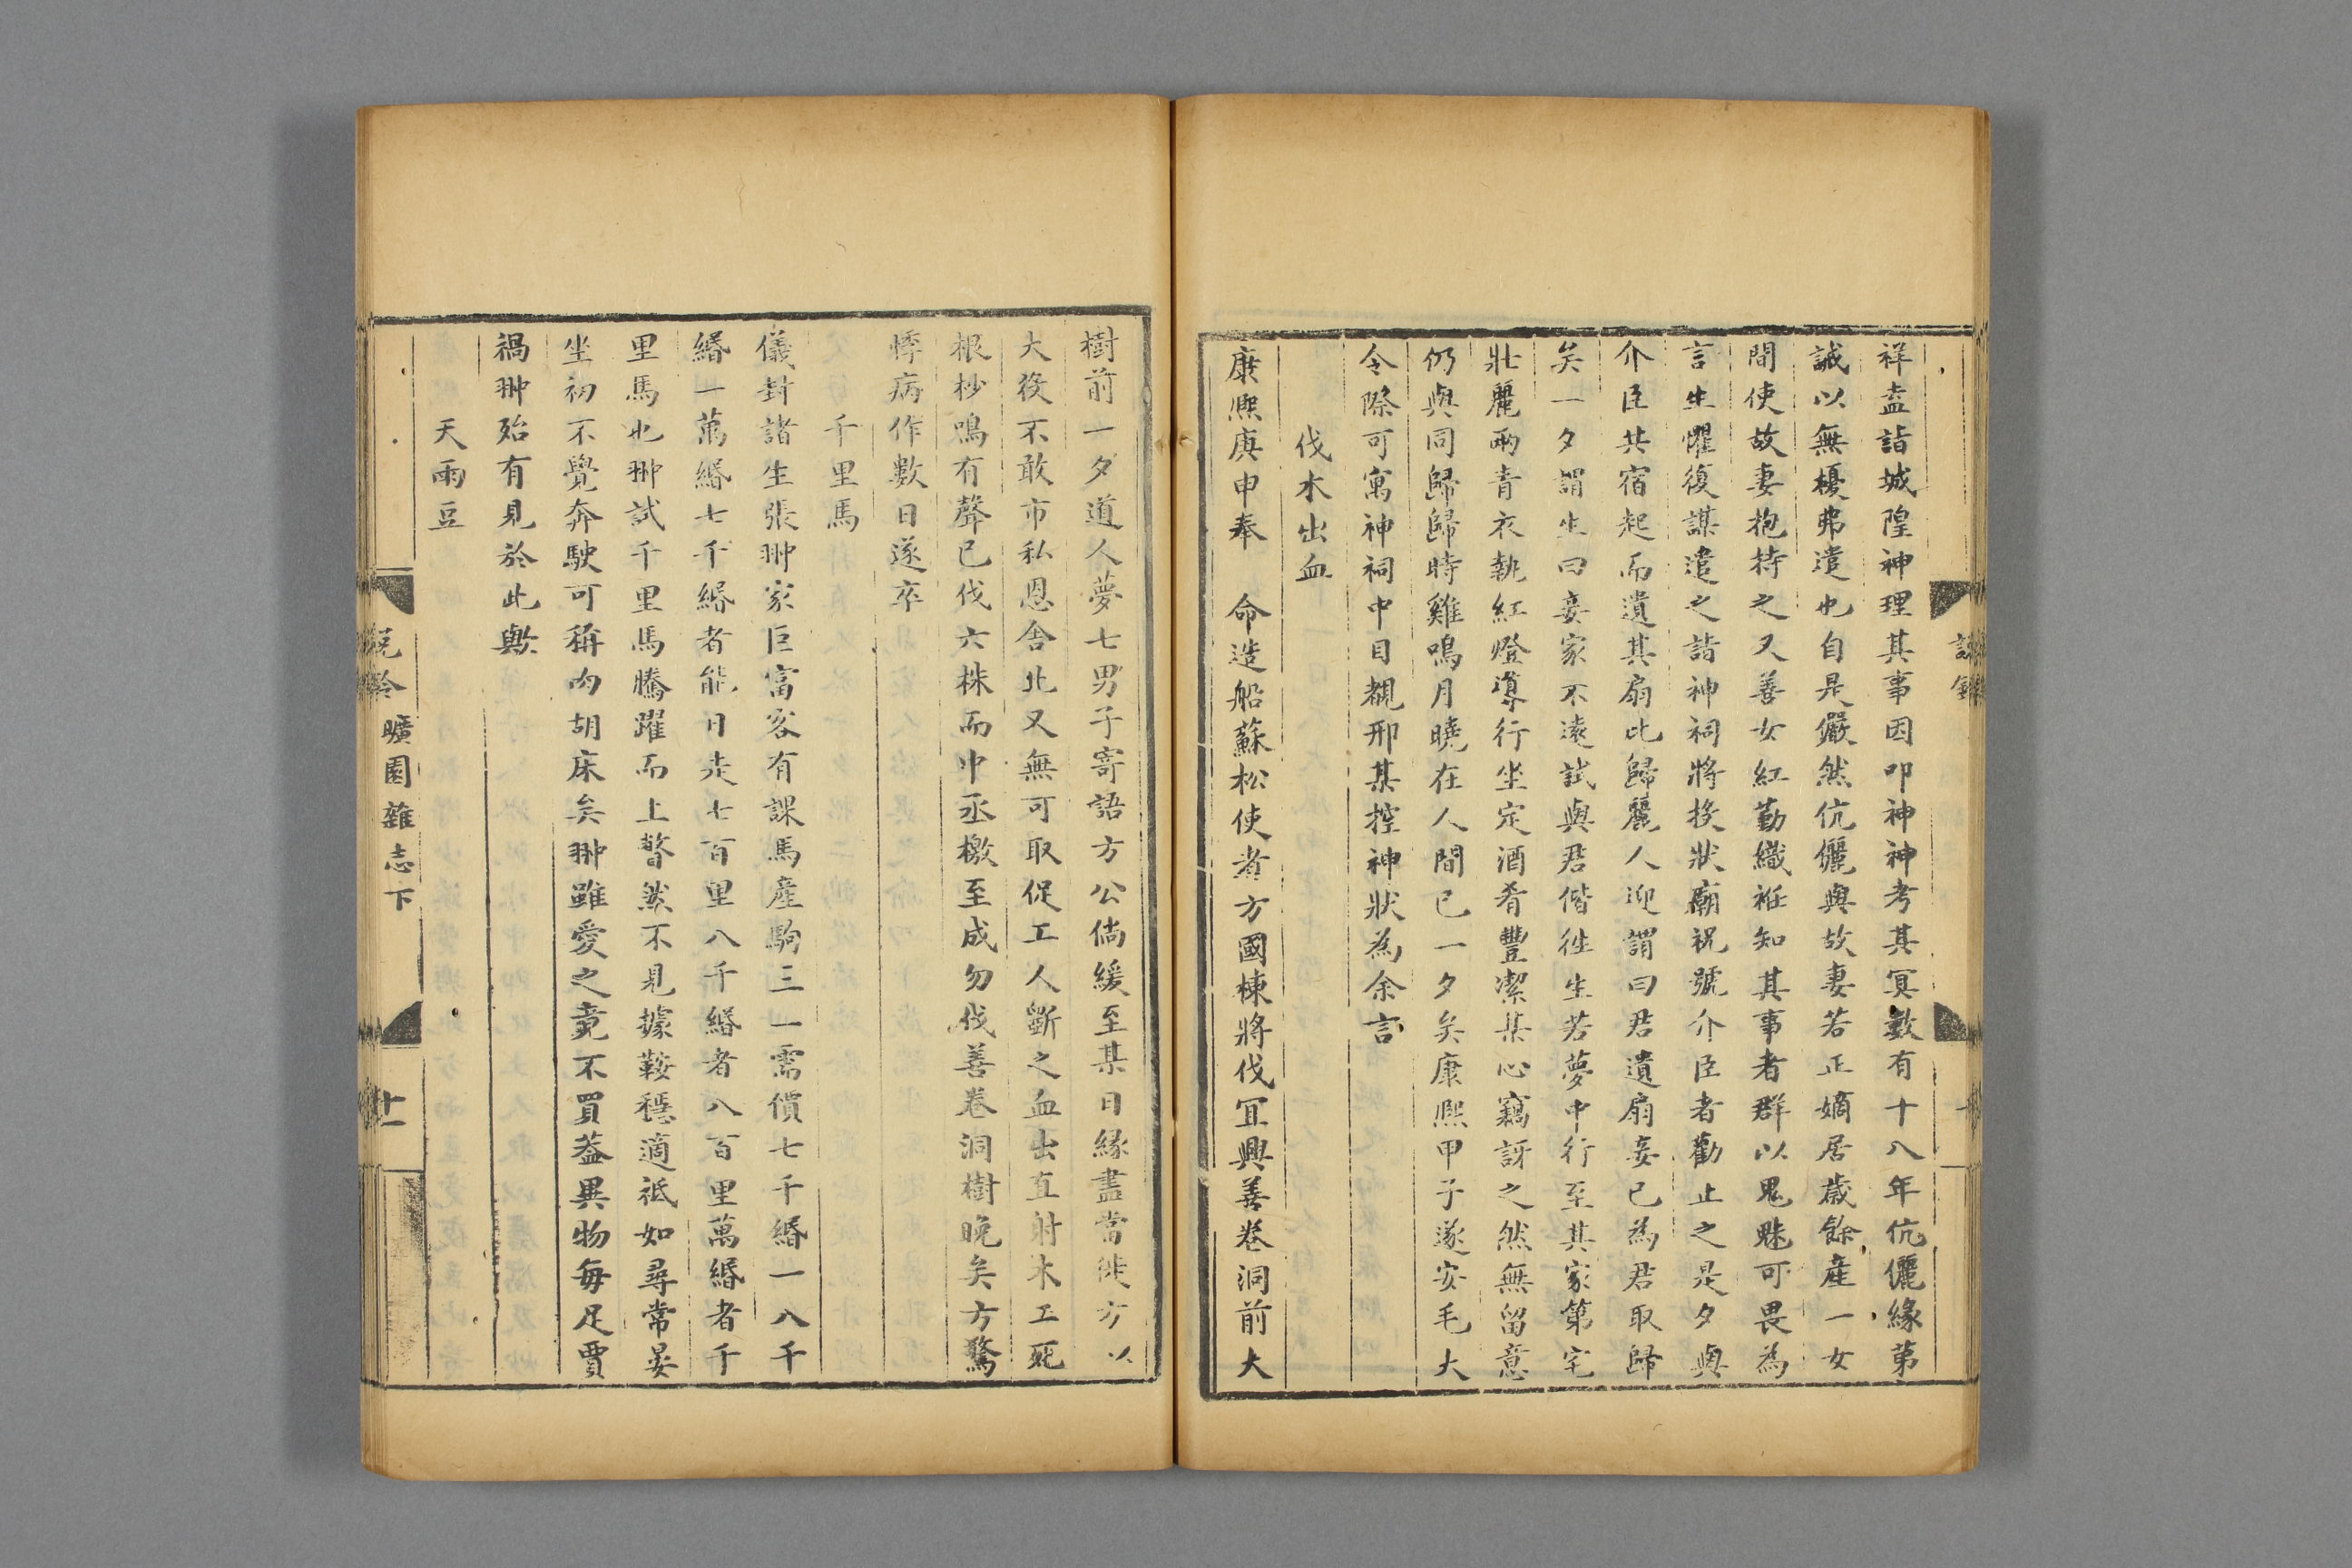 祥盍詣城隍神理其事因叩神神考其冥數有十八年伉儷緣第
誠以無櫌弗遣也自是儼然伉儷與故妻若正嫡居歲餘產一女
間使故妻抱持之又善女紅勤織袵知其事者群以鬼魅可畏為
言生懼復謀遣之詣神祠將挨狀廟祝號介臣者勸止之是夕與
介臣共宿起而遺其扇比歸麗人迎謂曰君遺扇妾已為君取歸
矣一夕謂生曰妾家不遠試與君偕徃生若夢中行至其家第宅
壯麗兩青衣執紅燈導行坐定酒肴豐潔某心竊訝之然無留意
仍與同歸歸時雞鳴月曉在人間已一夕矣康熙甲子遂安毛大
令際可寓神祠中目覩邢某控神狀為余言
伐木出血
康熙庚申奉　命造船蘇松使者方國棟將伐冝興善卷洞前大
樹前一夕道人夢七男子寄語方公倘緩至某日緣盡當徙方以
大役不敢市私恩舍此又無可取促工人斵之血出直射木工死
根杪鳴有聲已伐六株而中丞檄至成勿伐善卷洞樹晚矣方驚
悸病作數日遂卒
千里馬
儀封諸生張翀家巨富客有課馬產駒三一需價七千緡一八千
緡一萬緡七千緡者能日走七百里八千緡者八百里萬緡者千
里馬也翀試千里馬騰躍而上瞥然不見據鞍穩適祗如尋常晏
坐初不覺奔駛可稱肉胡床矣翀雖愛之竟不買葢異物每足賈
禍翀殆有見於此歟
天雨豆
說鈴
曠園雜志下
十一